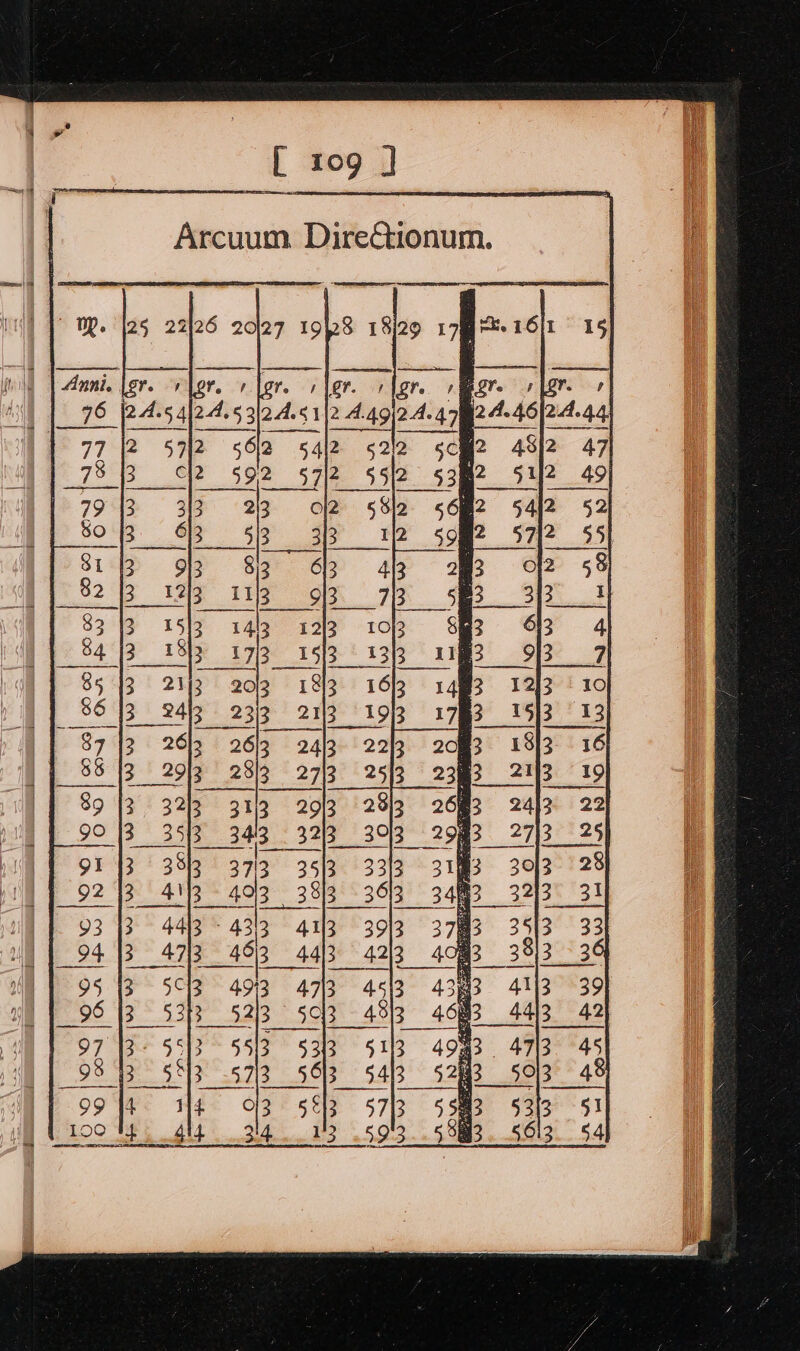 [ 109 ]
Arcuum Directionum.
♍. 25 22 26 20 27 19 28 18 29 17 ♎. 16 1 15
Anni. gr. ′ gr. ′ gr. ′ gr. ′ gr. ′ gr. ′ gr. ′
76 2 A. 54 2 A. 53 2 A. 51 2 A. 49 2 A. 47 2 A. 46 2 A. 44
77 2 57 2 56 2 54 2 52 2 50 2 48 2 47
78 3 0 2 59 2 57 2 55 2 53 2 51 2 49
79 3 3 3 2 3 0 2 58 2 56 2 54 2 52
80 3 6 3 5 3 3 3 1 2 59 2 57 2 55
81 3 9 3 8 3 6 3 4 3 2 3 0 2 58
82 3 12 3 11 3 9 3 7 3 5 3 3 3 1
83 3 15 3 14 3 12 3 10 3 8 3 6 3 4
84 3 18 3 17 3 15 3 13 3 11 3 9 3 7
85 3 21 3 20 3 18 3 16 3 14 3 12 3 10
86 3 24 3 23 3 21 3 19 3 17 3 15 3 13
87 3 26 3 26 3 24 3 22 3 20 3 18 3 16
88 3 29 3 28 3 27 3 25 3 23 3 21 3 19
89 3 32 3 31 3 29 3 28 3 26 3 24 3 22
90 3 35 3 34 3 32 3 30 3 29 3 27 3 25
91 3 38 3 37 3 35 3 33 3 31 3 30 3 28
92 3 41 3 40 3 38 3 36 3 34 3 32 3 31
93 3 44 3 43 3 41 3 39 3 37 3 35 3 33
94 3 47 3 46 3 44 3 42 3 40 3 38 3 36
95 3 50 3 49 3 47 3 45 3 43 3 41 3 39
96 3 53 3 52 3 50 3 48 3 46 3 44 3 42
97 3 55 3 55 3 53 3 51 3 49 3 47 3 45
98 3 58 3 57 3 56 3 54 3 52 3 50 3 48
99 4 1 4 0 3 58 3 57 3 55 3 53 3 51
100 4 4 4 3 4 1 3 59 3 58 3 56 3 54